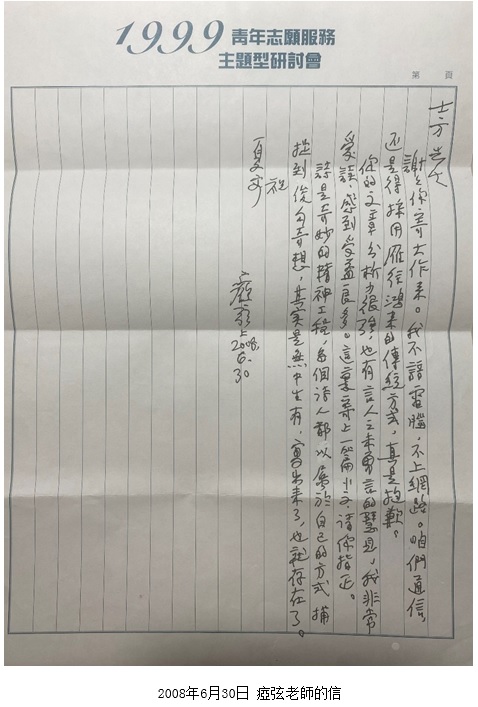 1999 青年志願服務
主題型研討會
第 頁
士方先生
謝謝你寄大作來。我不諳電腦，不上網路。咱們通信，
還是得採用雁往鴻來的傳統方式，真是抱歉。
你的文章分析力很強，也有言人之未曾言的慧見，我非常
愛讀，感到受益良多。這裏寄上一篇小文，請你指正。
詩是奇妙的精神工程，每個詩人都以屬於自己的方式捕
捉到俊句奇想，其實是無中生有，寫出來了，也就存在了。
祝
夏安
瘂弦上
2008.
6.
30
2008年6月30日 瘂弦老師的信